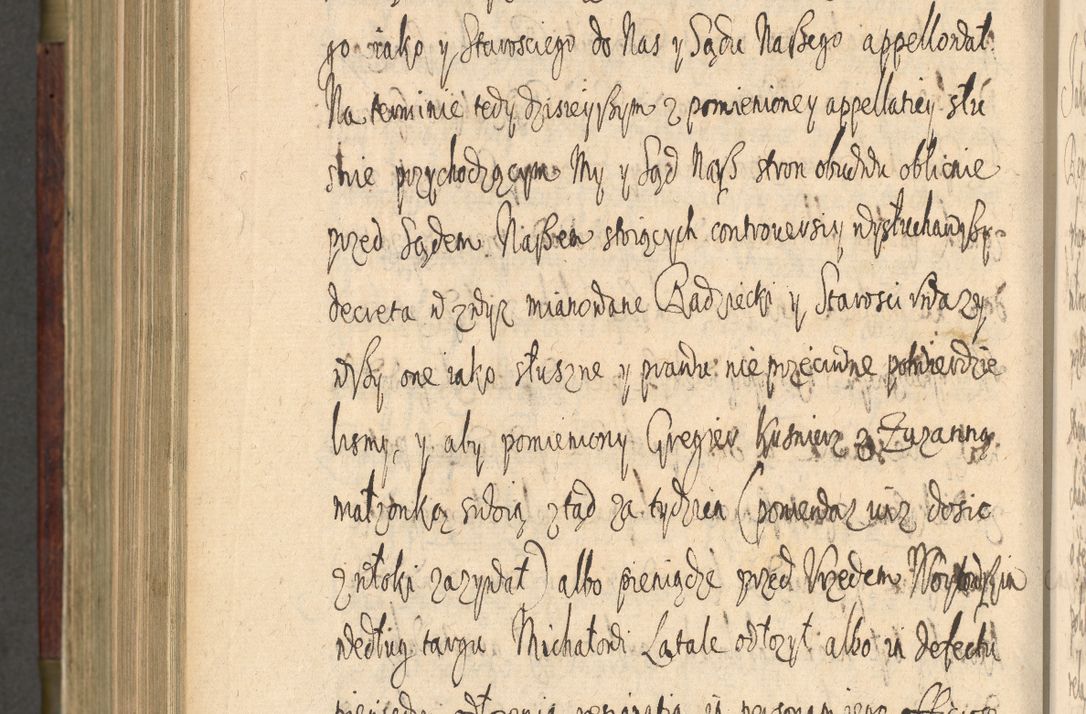 go iako y Starosciego do Nas y Sądu Naszego appellował.
Na terminie tedy dzisieyszym z pomienioney appellatiey słu
snie przychodzącym My y Sąd Nasz stron obudwu oblicnie
przed Sądem Naszem stoiących controuersiy wysłuchawszy
decreta w zwysz mianowane Radziecki y Starosci uwazy
wszy one iako słuszne y prawu nie przeciwne potwierdzie
lismy, y aby pomieniony Gregier Kusnierz z Zuzanną
małzonką swoią ztąd za tydzien (poniewaz iusz dosic
zwłoki zazywał) albo pieniądze przed Urzędem
według targu Michałowi Latale odłozył albo in defectu